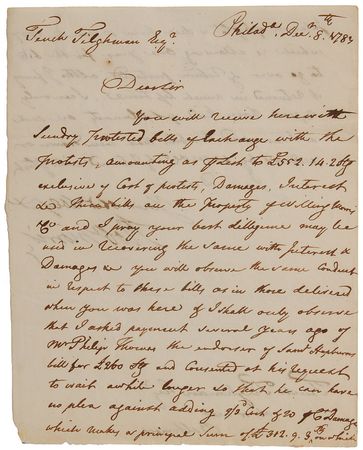 Tench Tilghman Esqr. Philada. Decr. 8th 1783
Dear sir
You will receive herewith
Sundry protested bills of Exchange with the
protests, amounting as pr List to £552.14.2 Stg
exclusive of Cost of protests, Damages, Interest
&c These bills are the property of Willing Morris
& Co and I pray your best dilligence may be
used in recovering the same with Interest &
Damages &c you will observe the same Conduct
in respect to these bills as in those delivered
when you was here & I shall only observe
that I asked payment several years ago of
Mr Philip Thomas the endorser of Saml Hepburns
bill for £260 Stg and Consented at his request
to wait awhile longer so that he can have
no plea against adding Cost & 20 pCt Damage
which makes a principal Sum of £312.9.3 on which